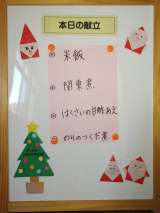 本日の献立
米飯
関東煮
はくさいの甘酢あえ
のりのつくだ煮